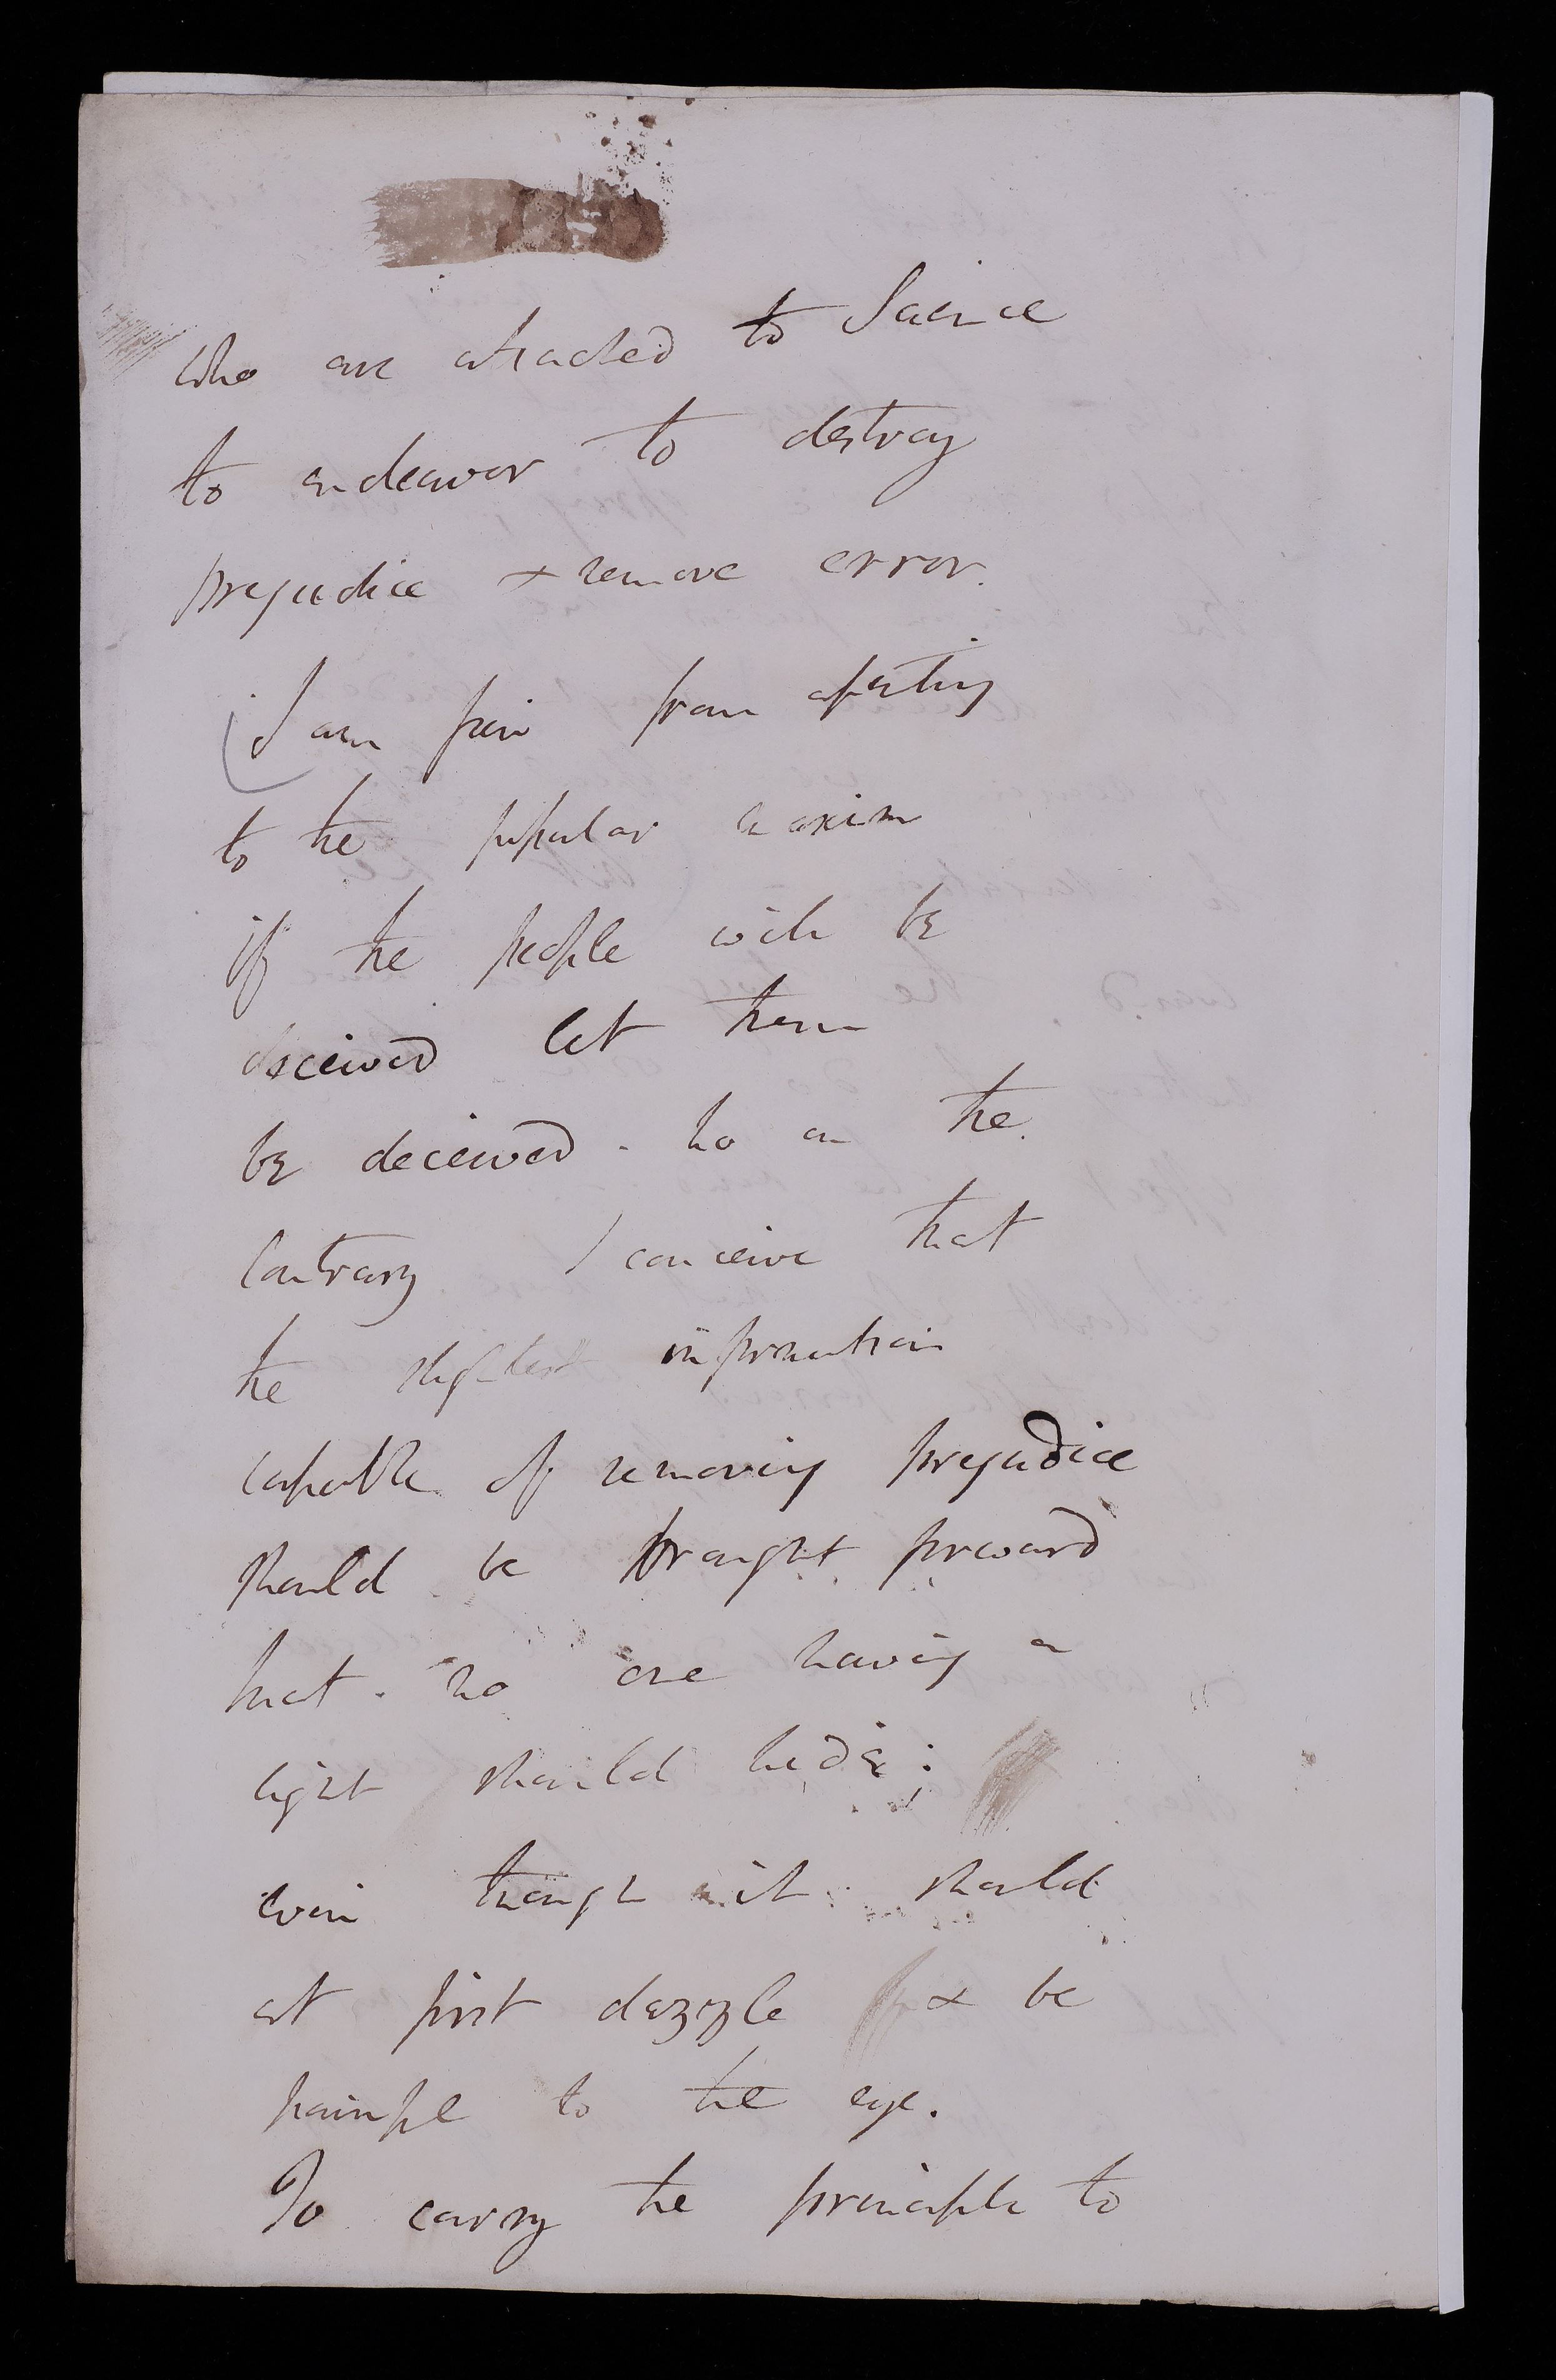 who are attached to Science
to endeavor to destroy
prejudice & remove error.
I am far from assenting
to the popular maxim
if the people wish be
deceived let them
be deceived - no on the
Contrary I conceive that
the slightest information
capable of removing prejudice
should be brought forward
that no one having a
light should hide;
even though it should
at first dazzle & be
painful to the eye.
To carry the principle to